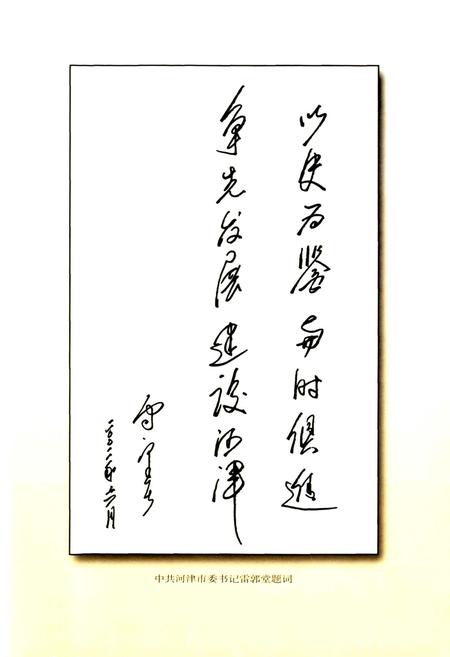 以史为鉴与时俱進
争先发展建设河津
雷郭堂
二〇〇二年六月
中共河津市委书记雷郭堂题词